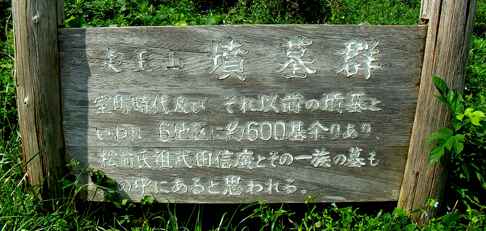 夷王山 墳墓群
室町時代及び それ以前の墳墓と
いわれ 6地区に約600基余りあり、
松前氏祖武田信廣とその一族の墓も
の中にあると思われる。